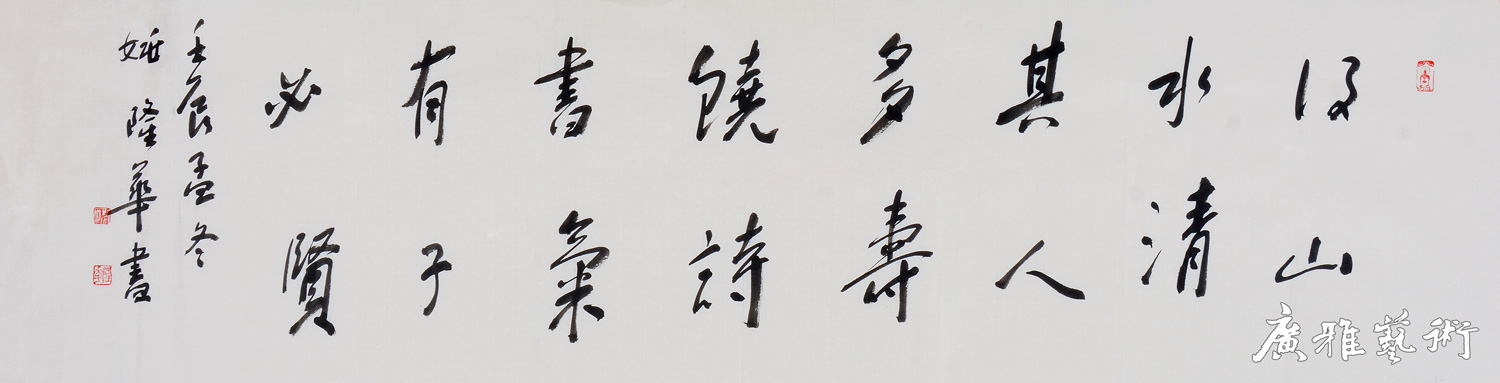 得山
水清
其人
多壽
饒詩
書氣
有子
必賢
壬辰孟冬
隆華書
廣雅藝術